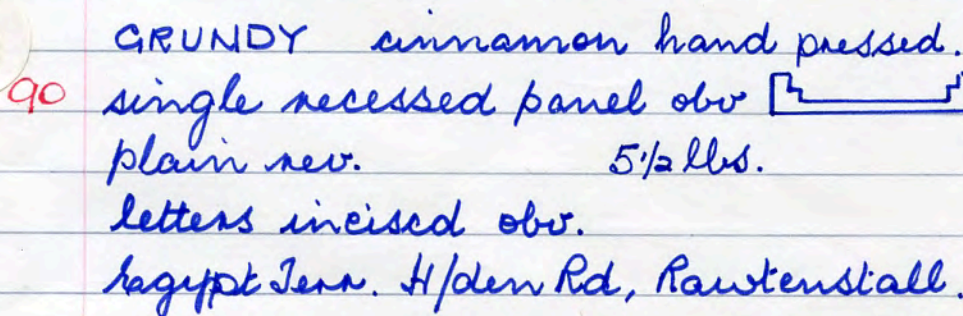 GRUNDY cinnamon hand pressed.
90 single recessed panel obv
plain rev. 5 1/2 lbs.
letters incised obv.
Egypt Terr. H/den Rd, Rawtenstall.